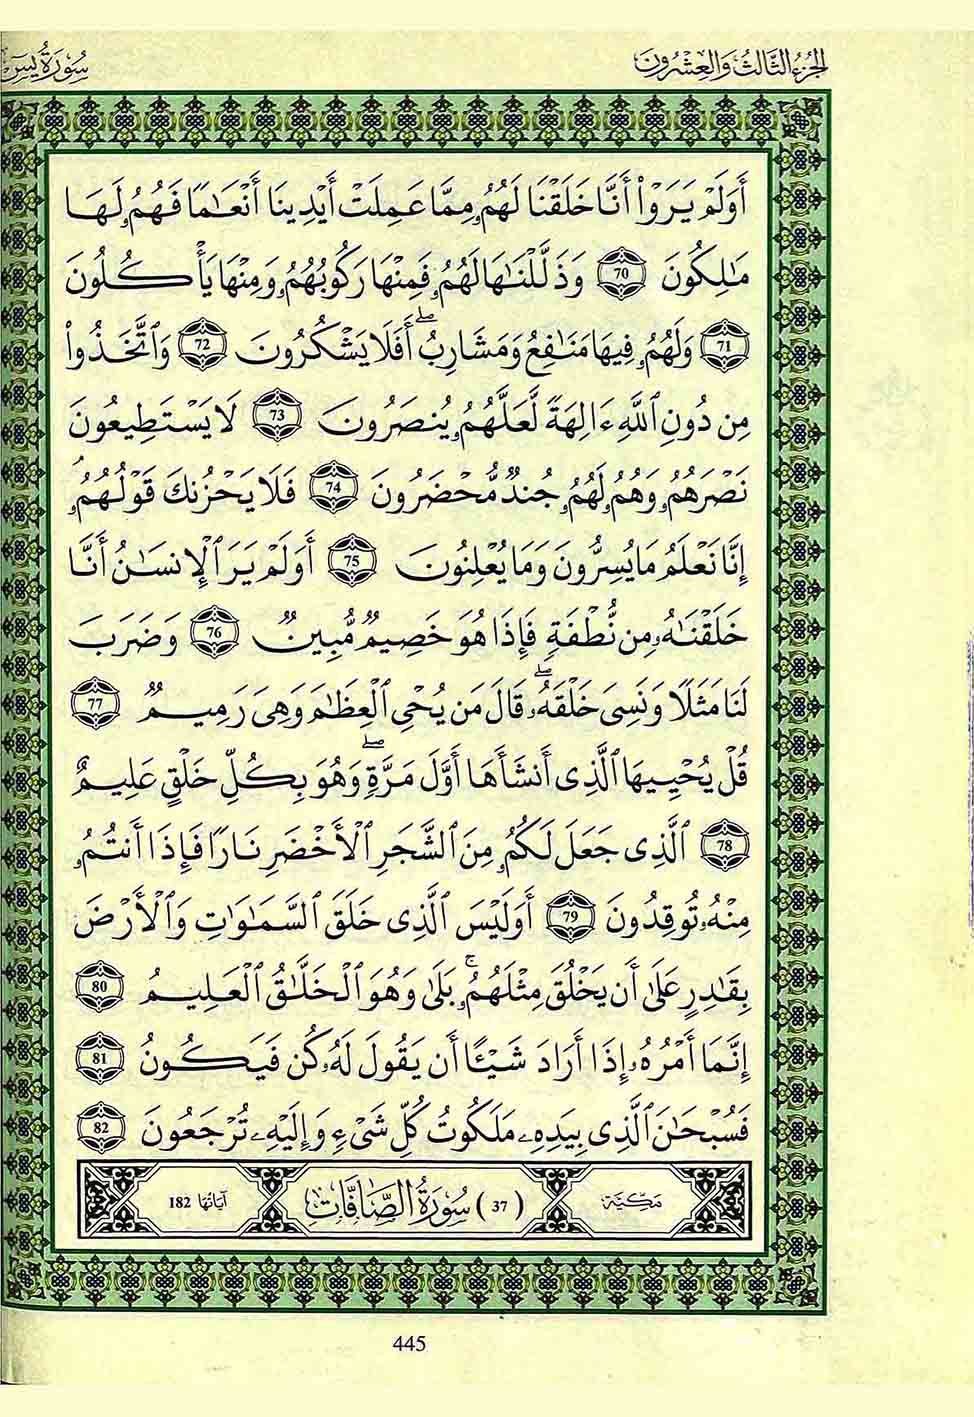 الجزء الثالث والعشرون
سورة يس
أَوَلَمْ يَرَوْا۟ أَنَّا خَلَقْنَا لَهُمُۥ مِمَّا عَمِلَتْ أَيْدِينَا أَنْعَٰمًا فَهُمُۥ لَهَا
مَٰلِكُونَ 70 وَذَلَّلْنَٰهَا لَهُمُۥ فَمِنْهَا رَكُوبُهُمُۥ وَمِنْهَا يَأْكُلُونَ
71 وَلَهُمُۥ فِيهَا مَنَٰفِعُ وَمَشَارِبُۖ أَفَلَا يَشْكُرُونَ 72 وَٱتَّخَذُوا۟
مِن دُونِ ٱللَّهِ ءَالِهَةً لَّعَلَّهُمُۥ يُنصَرُونَ 73 لَا يَسْتَطِيعُونَ
نَصْرَهُمُۥ وَهُمُۥ لَهُمُۥ جُندٌ مُّحْضَرُونَ 74 فَلَا يَحْزُنكَ قَوْلُهُمُۥ
إِنَّا نَعْلَمُ مَا يُسِرُّونَ وَمَا يُعْلِنُونَ 75 أَوَلَمْ يَرَ ٱلْإِنسَٰنُ أَنَّا
خَلَقْنَٰهُۥ مِن نُّطْفَةٍ فَإِذَا هُوَ خَصِيمٌ مُّبِينٌ 76 وَضَرَبَ
لَنَا مَثَلًا وَنَسِىَ خَلْقَهُۥۖ قَالَ مَن يُحْىِ ٱلْعِظَٰمَ وَهِىَ رَمِيمٌ 77
قُلْ يُحْيِيهَا ٱلَّذِى أَنشَأَهَا أَوَّلَ مَرَّةٍۖ وَهُوَ بِكُلِّ خَلْقٍ عَلِيمٌ
78 ٱلَّذِى جَعَلَ لَكُمُۥ مِنَ ٱلشَّجَرِ ٱلْأَخْضَرِ نَارًا فَإِذَا أَنتُمُۥ
مِنْهُۥ تُوقِدُونَ 79 أَوَلَيْسَ ٱلَّذِى خَلَقَ ٱلسَّمَٰوَٰتِ وَٱلْأَرْضَ
بِقَٰدِرٍ عَلَىٰ أَن يَخْلُقَ مِثْلَهُمُۥۚ بَلَىٰ وَهُوَ ٱلْخَلَّٰقُ ٱلْعَلِيمُ 80
إِنَّمَا أَمْرُهُۥ إِذَا أَرَادَ شَيْـًٔا أَن يَقُولَ لَهُۥ كُن فَيَكُونُ 81
فَسُبْحَٰنَ ٱلَّذِى بِيَدِهِۦ مَلَكُوتُ كُلِّ شَىْءٍ وَإِلَيْهِۦ تُرْجَعُونَ 82
مكية (37) سُورَةُ الصَّافَّاتِ آياتها 182
445